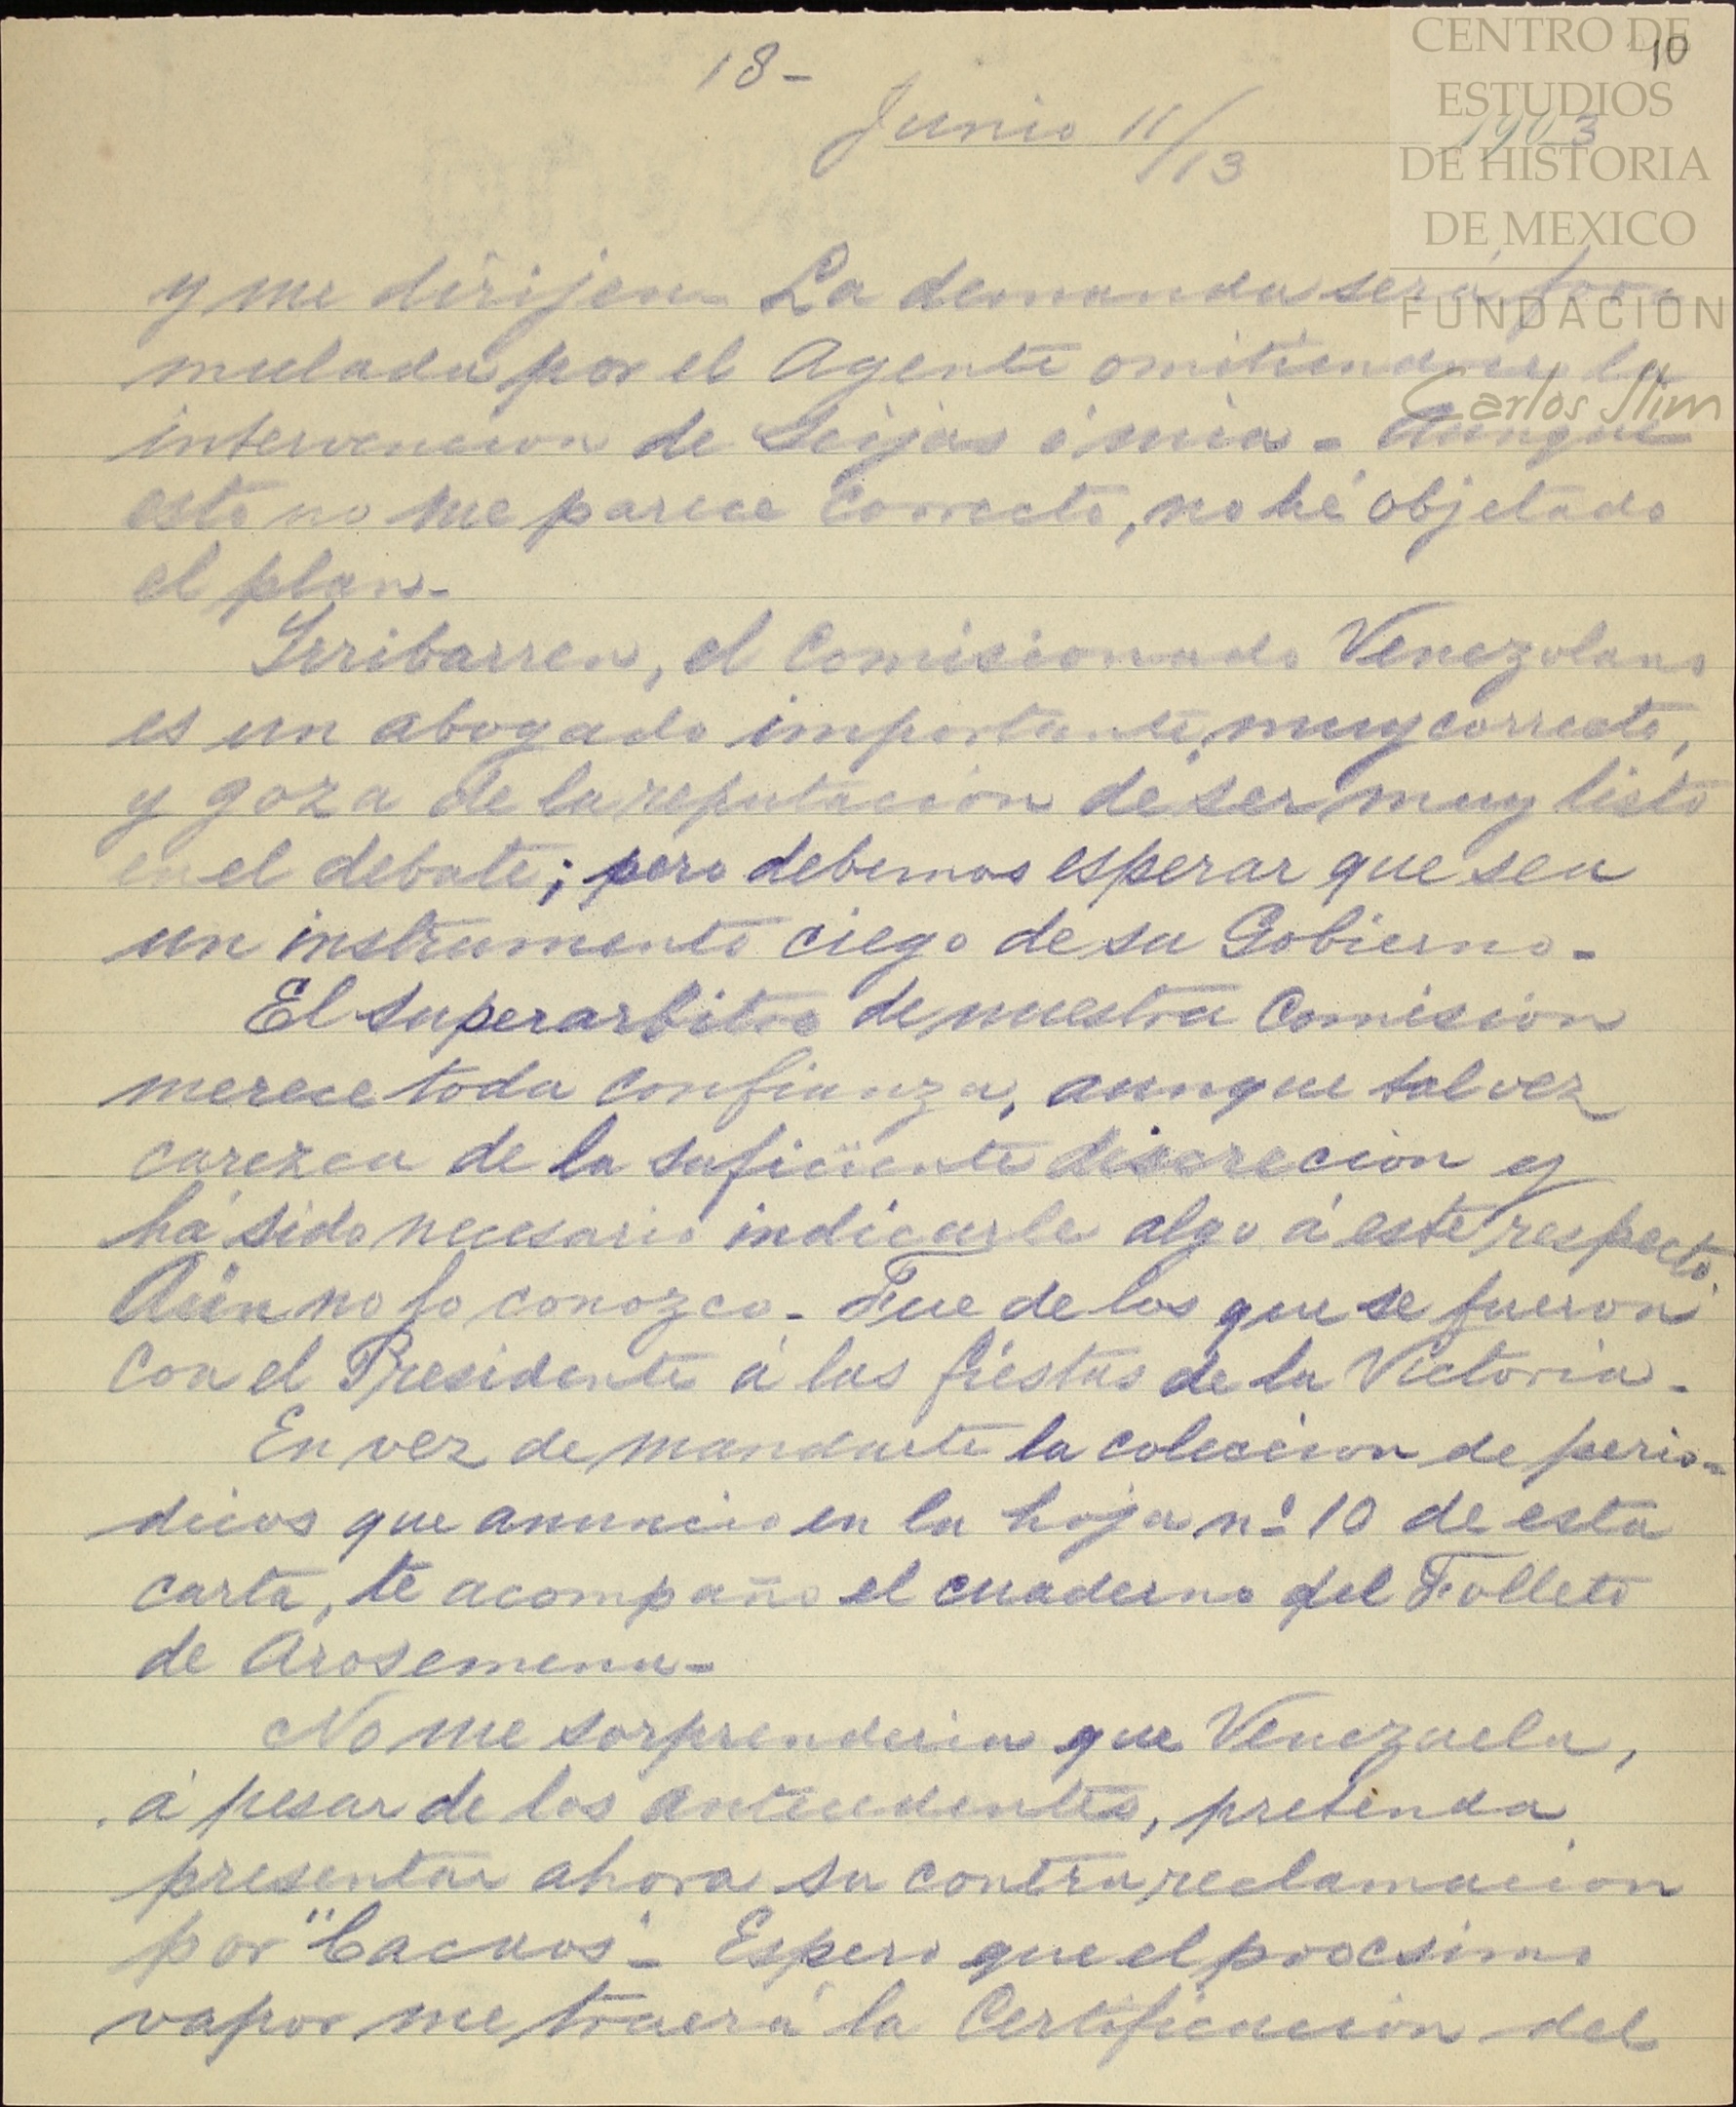 18-
10
Junio 11/13 1903
CENTRO DE
ESTUDIOS
DE HISTORIA
DE MEXICO
FUNDACION
Carlos Slim
y me dirijen. La demanda será for-
mulada por el Agente omitiendose la
intervencion de Seijas ó mia - Aunque
esto no me parece correcto, no hé objetado
el plan.
Irribarren, el Comisionado Venezolano
es un abogado importante, muy correcto,
y goza de la reputación de ser muy listo
en el debate; pero debemos esperar que sea
un instrumento ciego de su Gobierno.
El superarbitro de nuestra Comision
merece toda confianza, aunque tal vez
carezca de la suficiente discrecion y
há sido necesario indicarle algo á este respecto.
Aún no lo conozco - Fue de los que se fueron
con el Presidente á las fiestas de la Victoria.
En vez de mandarte la coleccion de perio-
dicos que anuncio en la hoja nº 10 de esta
carta, te acompaño el cuaderno del Folleto
de Arosemena-
No me sorprenderia que Venezuela,
á pesar de los antecedentes, pretenda
presentar ahora su contra reclamacion
por "Cacaos" - Espero que el procsimo
vapor me traerá la Certificación del